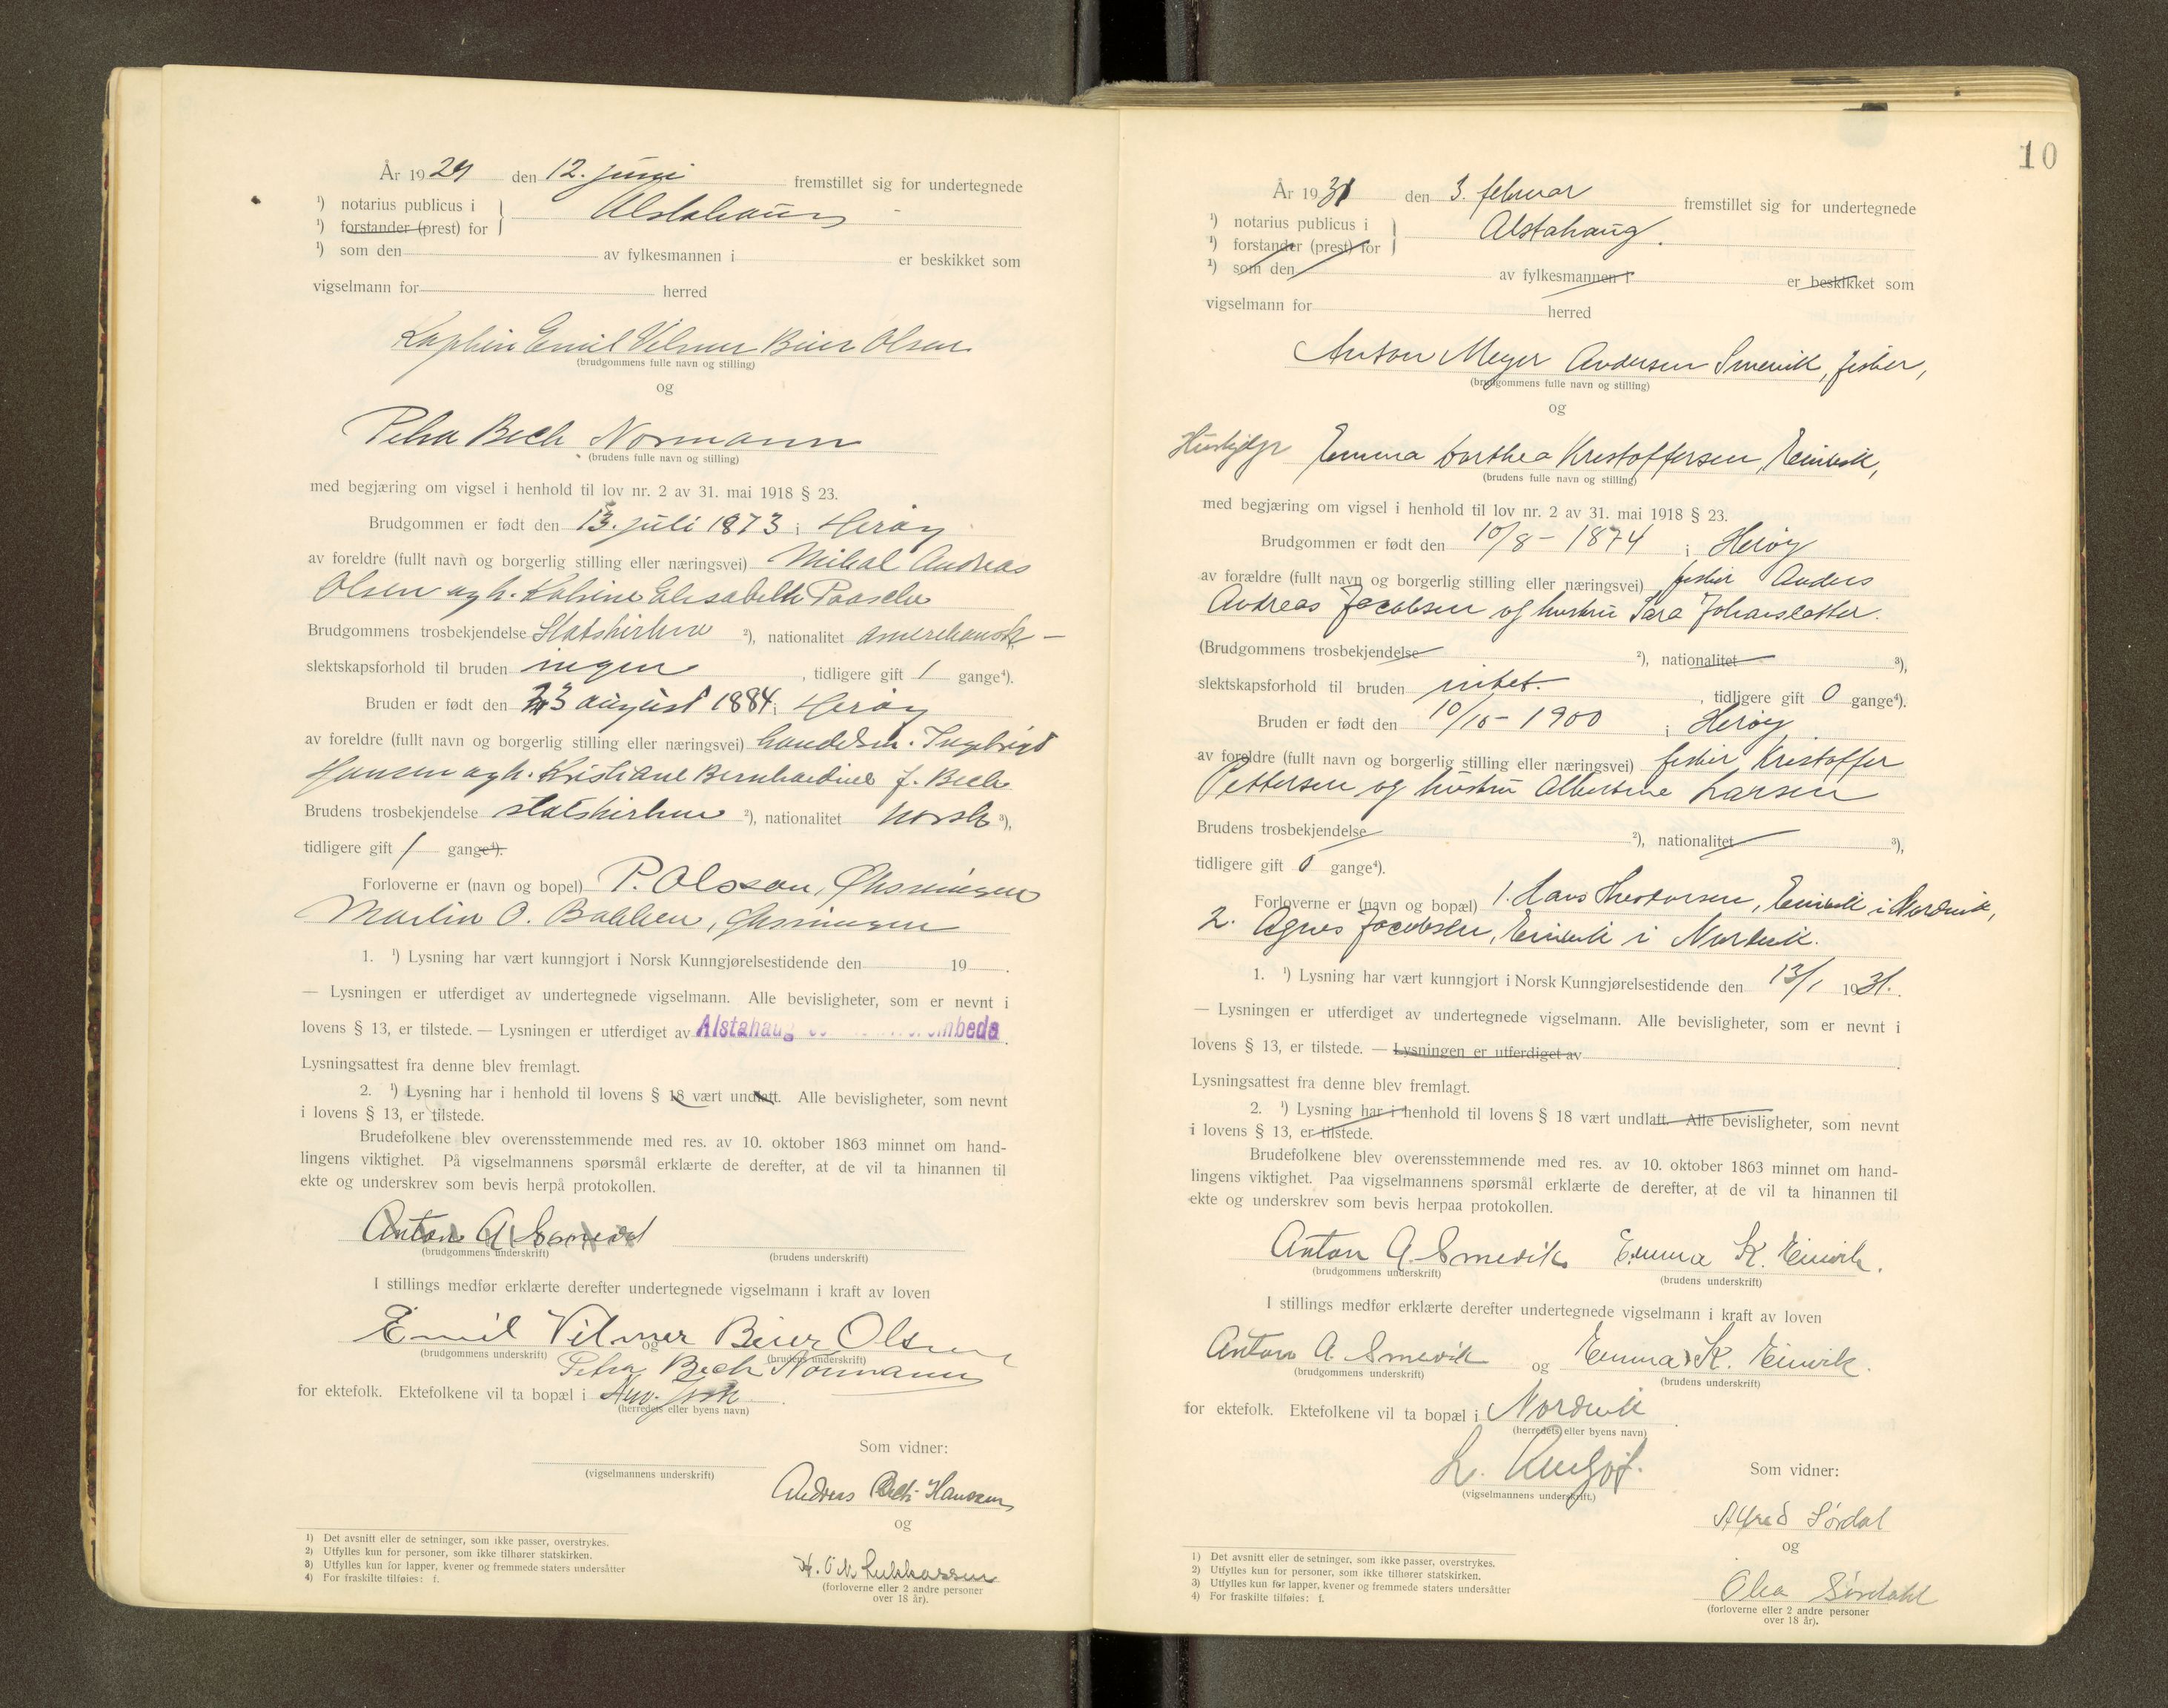 År 1929 den 12. juni fremstillet sig for undertegnede
¹) notarius publicus i
Alstahaug
¹) forstander (prest) for
¹) som den av fylkesmannen i er beskikket som
vigselmann for herred
Kaptein Emil Vilmer Beier Olsen
(brudgommens fulle navn og stilling)
og
Petra Bech Normann
(brudens fulle navn og stilling)
med begjæring om vigsel i henhold til lov nr. 2 av 31. mai 1918 § 23.
Brudgommen er født den 13. juli 1873 i Herøy
av foreldre (fullt navn og borgerlig stilling eller næringsvei) Mikal Andreas
Olsen og h. Katrine Elisabeth Paasche
Brudgommens trosbekjendelse Statskirken ²), nationalitet amerikansk
slektskapsforhold til bruden ingen, tidligere gift 1 gange⁴).
Bruden er født den 23 august 1884 i Herøy
av foreldre (fullt navn og borgerlig stilling eller næringsvei) handelsm. Ingebrigt
Hansen og h. Kristiane Bernhardine f. Bech
Brudens trosbekjendelse statskirken ²), nationalitet norsk ³),
tidligere gift 1 gange⁴).
Forloverne er (navn og bopel) P. Olsson,
Martin O. Bakken,
1. ¹) Lysning har vært kunngjort i Norsk Kunngjørelsestidende den 19 .
— Lysningen er utferdiget av undertegnede vigselmann. Alle bevisligheter, som er nevnt i
lovens § 13, er tilstede. — Lysningen er utferdiget av Alstahaug
Lysningsattest fra denne blev fremlagt.
2. ¹) Lysning har i henhold til lovens § 18 vært undlatt. Alle bevisligheter, som nevnt
i lovens § 13, er tilstede.
Brudefolkene blev overensstemmende med res. av 10. oktober 1863 minnet om hand-
lingens viktighet. På vigselmannens spørsmål erklærte de derefter, at de vil ta hinannen til
ekte og underskrev som bevis herpå protokollen.
Anton A Smevik
(brudgommens underskrift) (brudens underskrift)
I stillings medfør erklærte derefter undertegnede vigselmann i kraft av loven
Emil Vilmer Beier Olsen
(brudgommens underskrift) og (brudens underskrift)
Petra Bech Normann
for ektefolk. Ektefolkene vil ta bopæl i .
(herredets eller byens navn)
Som vidner:
(vigselmannens underskrift)
Anders Bech Hanssen
og
Lukkassen
(forloverne eller 2 andre personer
over 18 år).
1) Det avsnitt eller de setninger, som ikke passer, overstrykes.
2) Utfylles kun for personer, som ikke tilhører statskirken.
3) Utfylles kun for lapper, kvener og fremmede staters undersåtter
4) For fraskilte tilføies: f.
10
År 1931 den 3. februar fremstillet sig for undertegnede
¹) notarius publicus i
Alstahaug.
¹) forstander (prest) for
¹) som den av fylkesmannen i er beskikket som
vigselmann for herred
Anton Meyer Andersen Smevik, fisker,
(brudgommens fulle navn og stilling)
og
Hushjelp Emma Dorthea Kristoffersen, Einvik,
(brudens fulle navn og stilling)
med begjæring om vigsel i henhold til lov nr. 2 av 31. mai 1918 § 23.
Brudgommen er født den 10/8 - 1874 i Herøy
av forældre (fullt navn og borgerlig stilling eller næringsvei) fisker Anders
Andreas Jacobsen og hustru Sara Johansdatter.
(Brudgommens trosbekjendelse ²), nationalitet ³),
slektskapsforhold til bruden intet. , tidligere gift 0 gange⁴).
Bruden er født den 10/10 - 1900 i Herøy
av foreldre (fullt navn og borgerlig stilling eller næringsvei) fisker Kristoffer
Pettersen og hustru Albertine Larsen
Brudens trosbekjendelse ²), nationalitet ³),
tidligere gift 0 gange⁴).
Forloverne er (navn og bopæl) 1. Hans Theodorsen, Einvik i Nordvik,
2. Agnes Jacobsen, Einvik i Nordvik.
1. ¹) Lysning har vært kunngjort i Norsk Kunngjørelsestidende den 13/1 1931.
— Lysningen er utferdiget av undertegnede vigselmann. Alle bevisligheter, som er nevnt i
lovens § 13, er tilstede. — Lysningen er utferdiget av .
Lysningsattest fra denne blev fremlagt.
2. ¹) Lysning har i henhold til lovens § 18 vært undlatt. Alle bevisligheter, som nevnt
i lovens § 13, er tilstede.
Brudefolkene blev overensstemmende med res. av 10. oktober 1863 minnet om hand-
lingens viktighet. Paa vigselmannens spørsmål erklærte de derefter, at de vil ta hinannen til
ekte og underskrev som bevis herpaa protokollen.
Anton A. Smevik Emma K. Einvik.
(brudgommens underskrift) (brudens underskrift)
I stillings medfør erklærte derefter undertegnede vigselmann i kraft av loven
Anton A. Smevik og Emma K. Einvik.
(brudgommens underskrift) (brudens underskrift)
for ektefolk. Ektefolkene vil ta bopæl i Nordvik .
(herredets eller byens navn)
L.
Som vidner:
(vigselmannens underskrift.)
Alfred Sørdal
og
Olea Sørdahl
(forloverne eller 2 andre personer
over 18 år).
1) Det avsnitt eller de setninger, som ikke passer, overstrykes.
2) Utfylles kun for personer, som ikke tilhører statskirken.
3) Utfylles kun for lapper, kvener og fremmede staters undersåtter
4) For fraskilte tilføies: f.